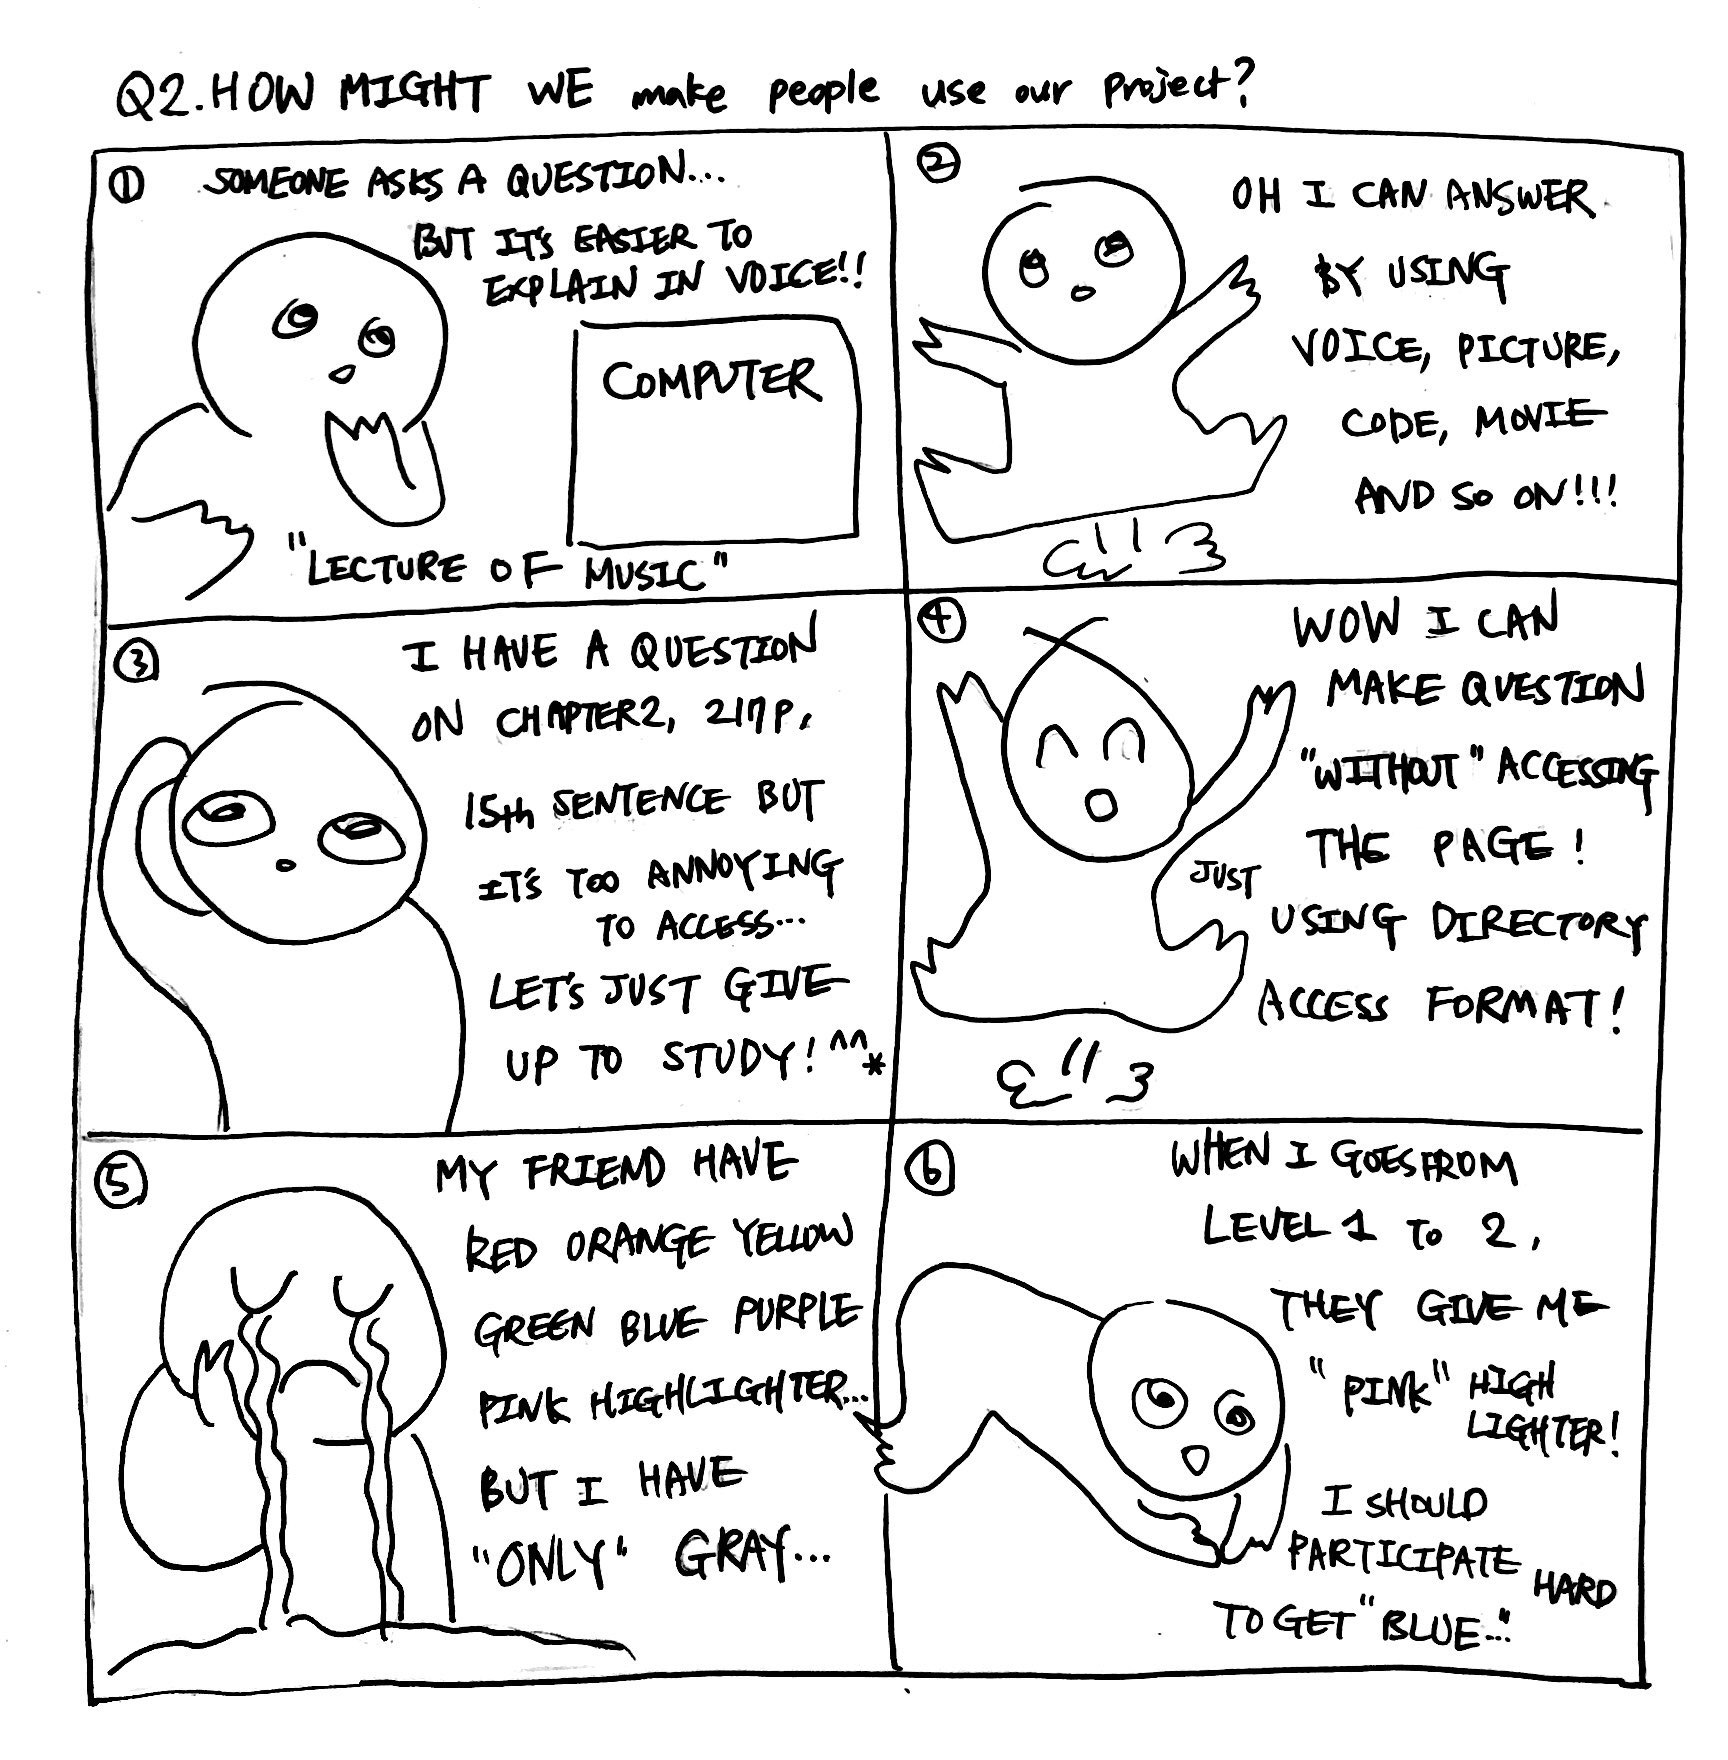 Q2. HOW MIGHT WE make people use our project?
① SOMEONE ASKS A QUESTION...
BUT IT'S EASIER TO
EXPLAIN IN VOICE!!
COMPUTER
"LECTURE OF MUSIC"
②
OH I CAN ANSWER
BY USING
VOICE, PICTURE,
CODE, MOVIE
AND SO ON!!!
③ I HAVE A QUESTION
ON CHAPTER2, 217P,
15th SENTENCE BUT
IT'S TOO ANNOYING
TO ACCESS...
LET'S JUST GIVE
UP TO STUDY! ^^*
④ WOW I CAN
MAKE QUESTION
"WITHOUT" ACCESSING
THE PAGE!
JUST
USING DIRECTORY
ACCESS FORMAT!
⑤ MY FRIEND HAVE
RED ORANGE YELLOW
GREEN BLUE PURPLE
PINK HIGHLIGHTER...
BUT I HAVE
"ONLY" GRAY...
⑥ WHEN I GOES FROM
LEVEL 1 TO 2,
THEY GIVE ME
"PINK" HIGH
LIGHTER!
I SHOULD
PARTICIPATE HARD
TO GET "BLUE..."